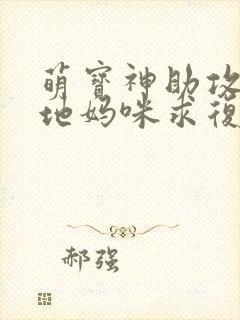 萌寳神助攻
地妈咪求復
郝强